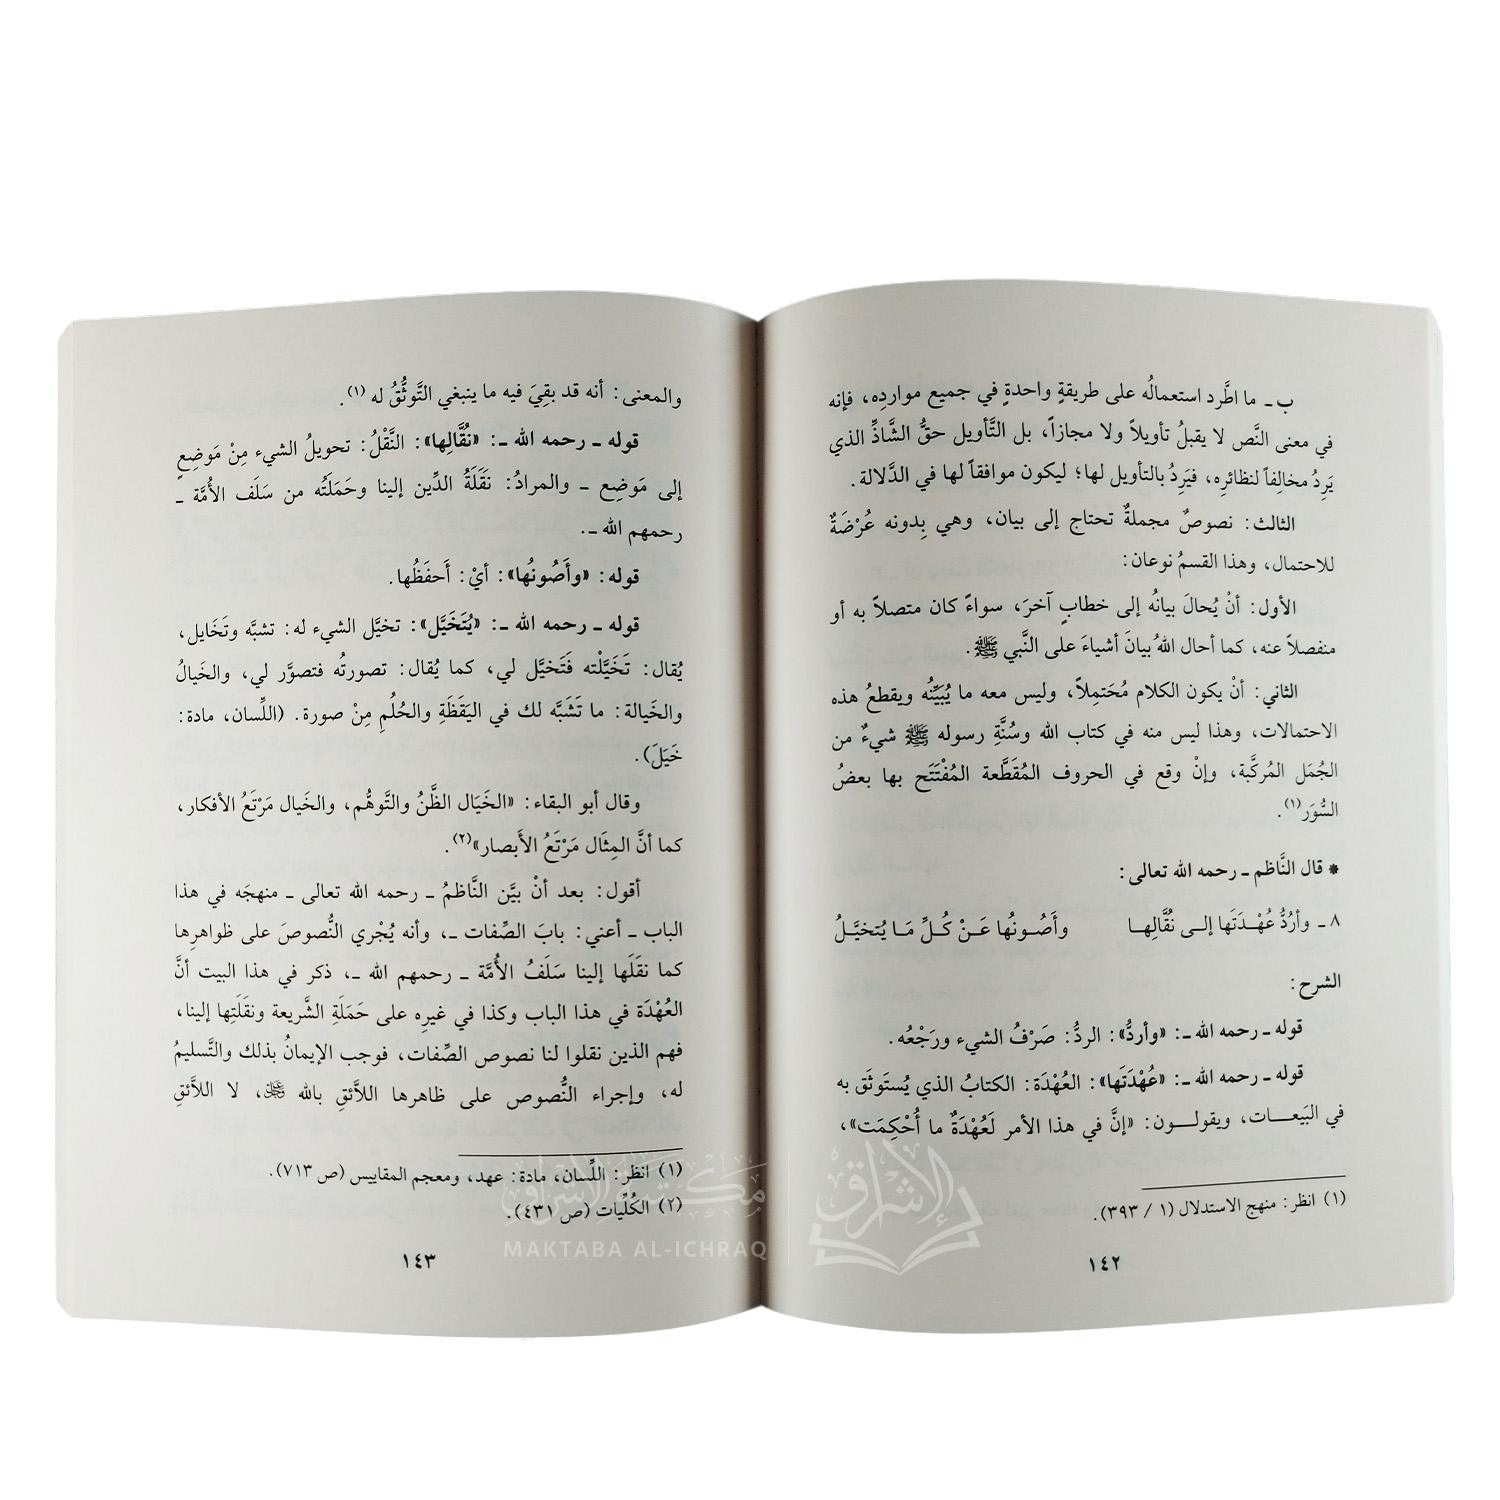 ب ـ ما اطَّرد استعمالُه على طريقةٍ واحدةٍ في جميع مواردِه، فإنه
في معنى النَّص لا يقبلُ تأويلاً ولا مجازاً، بل التَّأويل حقُّ الشَّاذِّ الذي
يَرِدُ مخالفاً لنظائرِه، فيَرِدُ بالتأويل لها؛ ليكون موافقاً لها في الدَّلالة.
الثالث: نصوصٌ مجملةٌ تحتاج إلى بيان، وهي بِدونه عُرْضَةٌ
للاحتمال، وهذا القسمُ نوعان:
الأول: أنْ يُحالَ بيانُه إلى خطابٍ آخرَ، سواءً كان متصلاً به أو
منفصلاً عنه، كما أحال اللهُ بيانَ أشياءَ على النَّبي ﷺ.
الثاني: أنْ يكون الكلام مُحَتمِلاً، وليس معه ما يُبَيِّنُه ويقطعُ هذه
الاحتمالات، وهذا ليس منه في كتاب الله وسُنَّةِ رسوله ﷺ شيءٌ من
الجُمَل المُركَّبة، وإنْ وقع في الحروف المُقَطَّعة المُفْتَتَح بها بعضُ
السُّوَر(١).
* قال النَّاظم ـ رحمه الله تعالى:
٨ ـ وأرُدُّ عُهْدَتَها إلى نُقَّالِها وأَصُونُها عَنْ كُلِّ مَا يُتخيَّلُ
الشرح:
قوله ـ رحمه الله ـ: «وأردُّ»: الردُّ: صَرْفُ الشيء ورَجْعُه.
قوله ـ رحمه الله ـ: «عُهْدَتَها»: العُهْدَة: الكتابُ الذي يُستَوثَق به
في البَيعات، ويقولون: «إنَّ في هذا الأمر لَعُهْدَةٌ ما أُحْكِمَت»،
(١) انظر: منهج الاستدلال (١ / ٣٩٣).
١٤٢
والمعنى: أنه قد بقِيَ فيه ما ينبغي التَّوثُّقُ له(١).
قوله ـ رحمه الله ـ: «نُقَّالِها»: النَّقْلُ: تحويلُ الشيء مِنْ مَوضِعٍ
إلى مَوضِع ـ والمرادُ: نَقَلَةُ الدِّين إلينا وحَمَلَتُه من سَلَف الأُمَّة ـ
رحمهم الله ـ.
قوله: «وأَصُونُها»: أيْ: أَحفَظُها.
قوله ـ رحمه الله ـ: «يُتَخَيَّل»: تخيَّل الشيء له: تشبَّه وتَخَايل،
يُقال: تَخَيَّلْته فَتَخيَّل لي، كما يُقال: تصورتُه فتصوَّر لي، والخَيالُ
والخَيالة: ما تَشَبَّه لك في اليَقَظَةِ والحُلُمِ مِنْ صورة. (اللِّسان، مادة:
خَيَلَ).
وقال أبو البقاء: «الخَيَال الظَّنُ والتَّوهُّم، والخَيال مَرْتَعُ الأفكار،
كما أنَّ المِثَال مَرْتَعُ الأَبصار»(٢).
أقول: بعد أنْ بيَّن النَّاظمُ ـ رحمه الله تعالى ـ منهجَه في هذا
الباب ـ أعني: بابَ الصِّفات ـ، وأنه يُجْري النُّصوصَ على ظواهرِها
كما نقَلَها إلينا سَلَفُ الأُمَّة ـ رحمهم الله ـ، ذكر في هذا البيت أنَّ
العُهْدَة في هذا الباب وكذا في غيرِه على حَمَلَةِ الشَّريعة ونقَلَتِها إلينا،
فهم الذين نقلوا لنا نصوص الصِّفات، فوجب الإيمانُ بذلك والتَّسليمُ
له، وإجراء النُّصوص على ظاهرها اللاَّئقِ بالله ﷻ، لا اللاَّئقِ
(١) انظر: اللِّسان، مادة: عهد، ومعجم المقاييس (ص ٧١٣).
(٢) الكُلِّيات (ص ٤٣١).
١٤٣
مكتبة الإشراق
MAKTABA AL-ICHRAQ
الإشراق